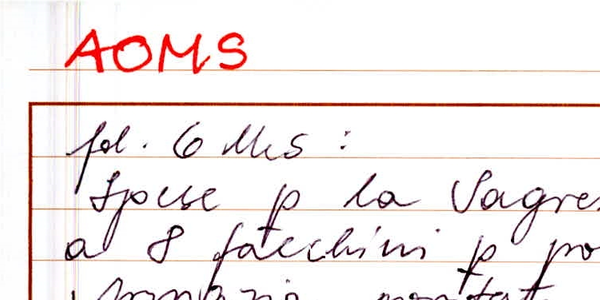 AOMS
fol. 6 Ms :
Spese p la Sagre
a 8 facchini p po